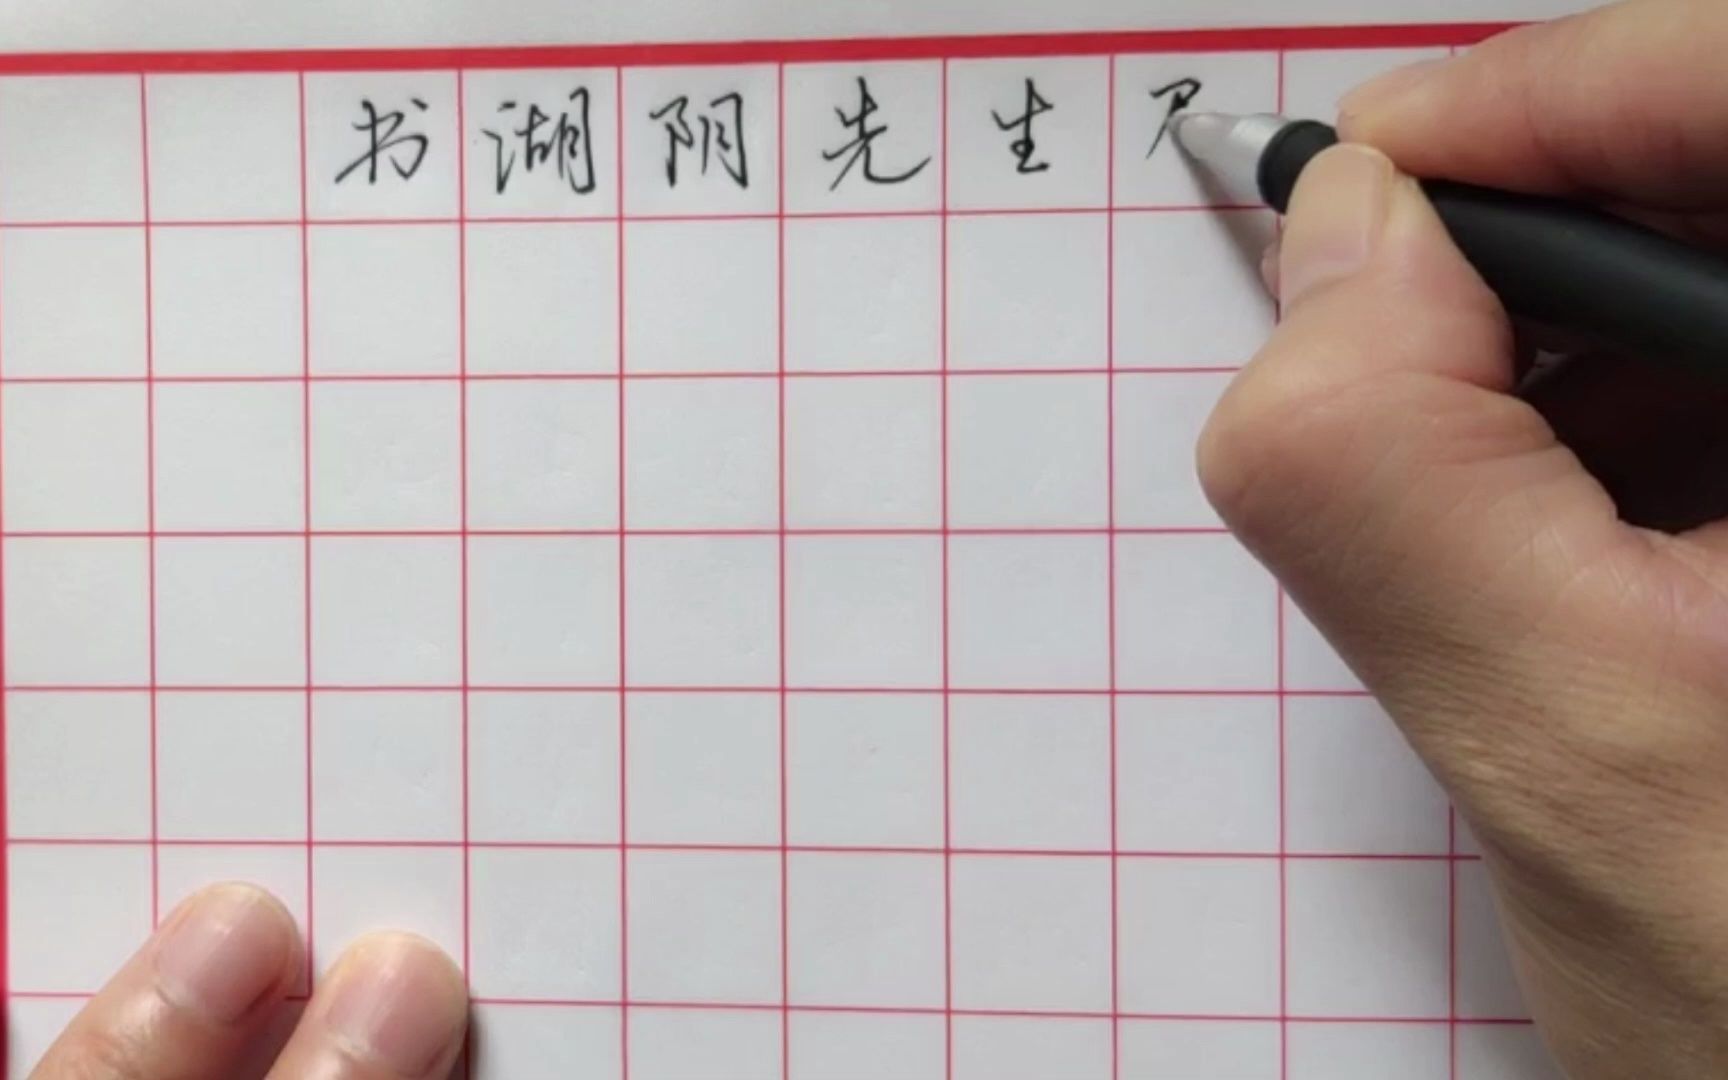 书湖阴先生